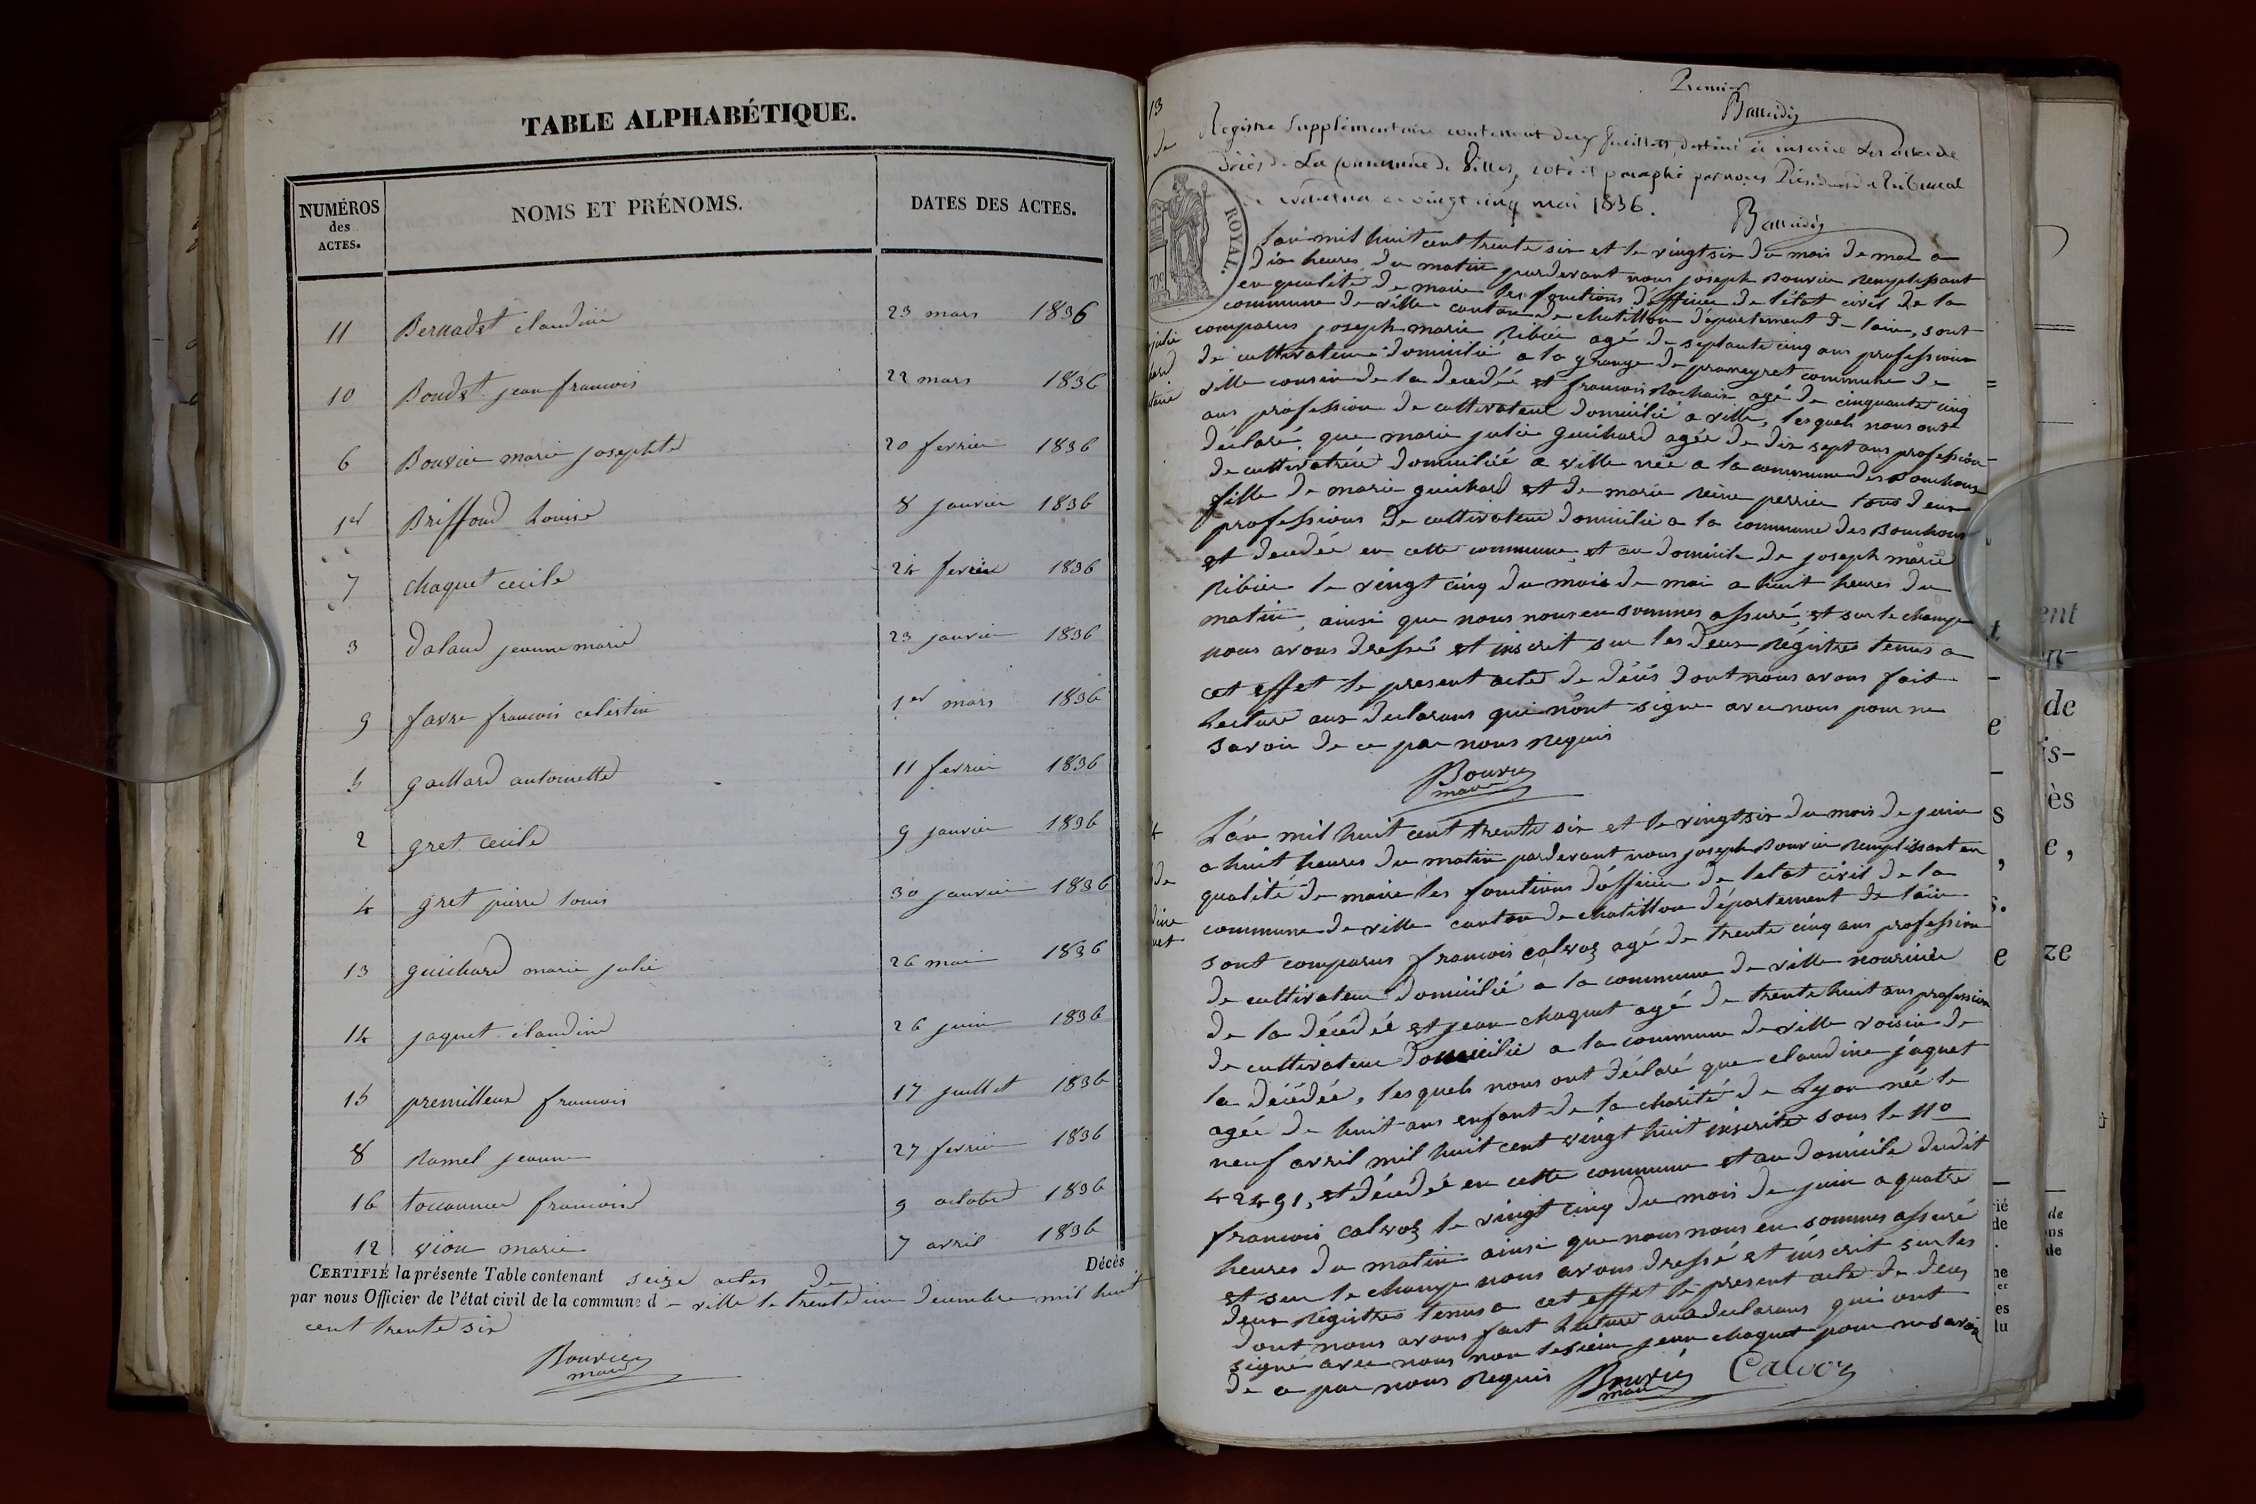 TABLE ALPHABÉTIQUE.
NUMÉROS des ACTES. NOMS ET PRÉNOMS. DATES DES ACTES.
11 Bernadet claudine 23 mars 1836
10 Boudet jean francois 22 mars 1836
6 Bouvier marie josephte 20 fevrier 1836
1er Briffoud Louise 8 janvier 1836
7 chaquet cecile 24 fevrier 1836
3 dalaud jeanne marie 23 janvier 1836
9 favre francois celestin 1er mars 1836
5 gaillard antoinette 11 fevrier 1836
2 gret cecile 9 janvier 1836
4 gret pierre louis 30 janvier 1836
13 guichard marie julie 26 mai 1836
14 jaquet claudine 26 juin 1836
15 premilleux francois 17 juillet 1836
8 Ramel jeanne 27 fevrier 1836
16 francoise 9 octobre 1836
12 vion marie 7 avril 1836
CERTIFIÉ la présente Table contenant seize actes de Décès
par nous Officier de l'état civil de la commune de ville le trente un decembre mil huit
cent trente six
Bouvier
maire
Premier
13
de
Registre Supplémentaire contenant deux feuillets, destiné à inscrire Les actes de
Décès de La Commune de Villes, coté et paraphé par nous Président du Tribunal
de vingt cinq mai 1836.
ROYAL.
L'an mil huit cent trente six et le vingt six du mois de mai a
dix heures du matin pardevant nous joseph Bouvier Remplissant
en qualité de maire les fonctions d'officier de l'état civil de la
commune de ville canton de chatillon département de l'ain, sont
comparus joseph marie Ribier agé de septante cinq ans profession
de cultivateur domicilié a la grange de prameyret commune de
ville cousin de la decedée et francois Rochaix agé de cinquante cinq
ans profession de cultivateur domicilié a ville, lesquels nous ont
déclaré que marie julie guichard agée de dix sept ans profession
de cultivatrice domiciliée a ville née a la commune des Bouchoux
fille de marie guichard et de marie Reine perrier tous deux
professions de cultivateur domicilié a la commune des Bouchoux
et decedée en cette commune et au domicile de joseph marie
Ribier le vingt cinq du mois de mai a huit heures du
matin, ainsi que nous nous en sommes assuré, et sur le champ
nous avons dressé et inscrit sur les deux Régistres tenus a
cet effet le present acte de décès dont nous avons fait
Lecture aux declarans qui n'ont signé avec nous pour ne
savoir de ce par nous Requis
Bouvier
maire
L'an mil huit cent trente six et le vingt six du mois de juin
a huit heures du matin pardevant nous joseph Bouvier Remplissant en
qualité de maire les fonctions d'officier de l'etat civil de la
commune de ville canton de chatillon département de l'ain
sont comparus francois calvoz agé de trente cinq ans profession
de cultivateur domicilié a la commune de ville nouricier
de la décédée et jean chaquet agé de trente huit ans profession
de cultivateur domicilié a la commune de ville voisin de
la décédée, lesquels nous ont déclaré que claudine jaquet
agée de huit ans enfant de la charité de Lyon née le
neuf avril mil huit cent vingt huit inscrite sous le no
42491, et décédée en cette commune et au domicile dudit
francois calvoz le vingt cinq du mois de juin a quatre
heures du matin ainsi que nous nous en sommes assuré
et sur le champ nous avons dressé et inscrit sur les
deux Régistres tenus a cet effet le present acte de deces
dont nous avons fait Lecture aux declarans qui ont
signé avec nous non le sieur jean chaquet pour ne savoir
de ce par nous Requis
Bouvier
maire
Calvoz